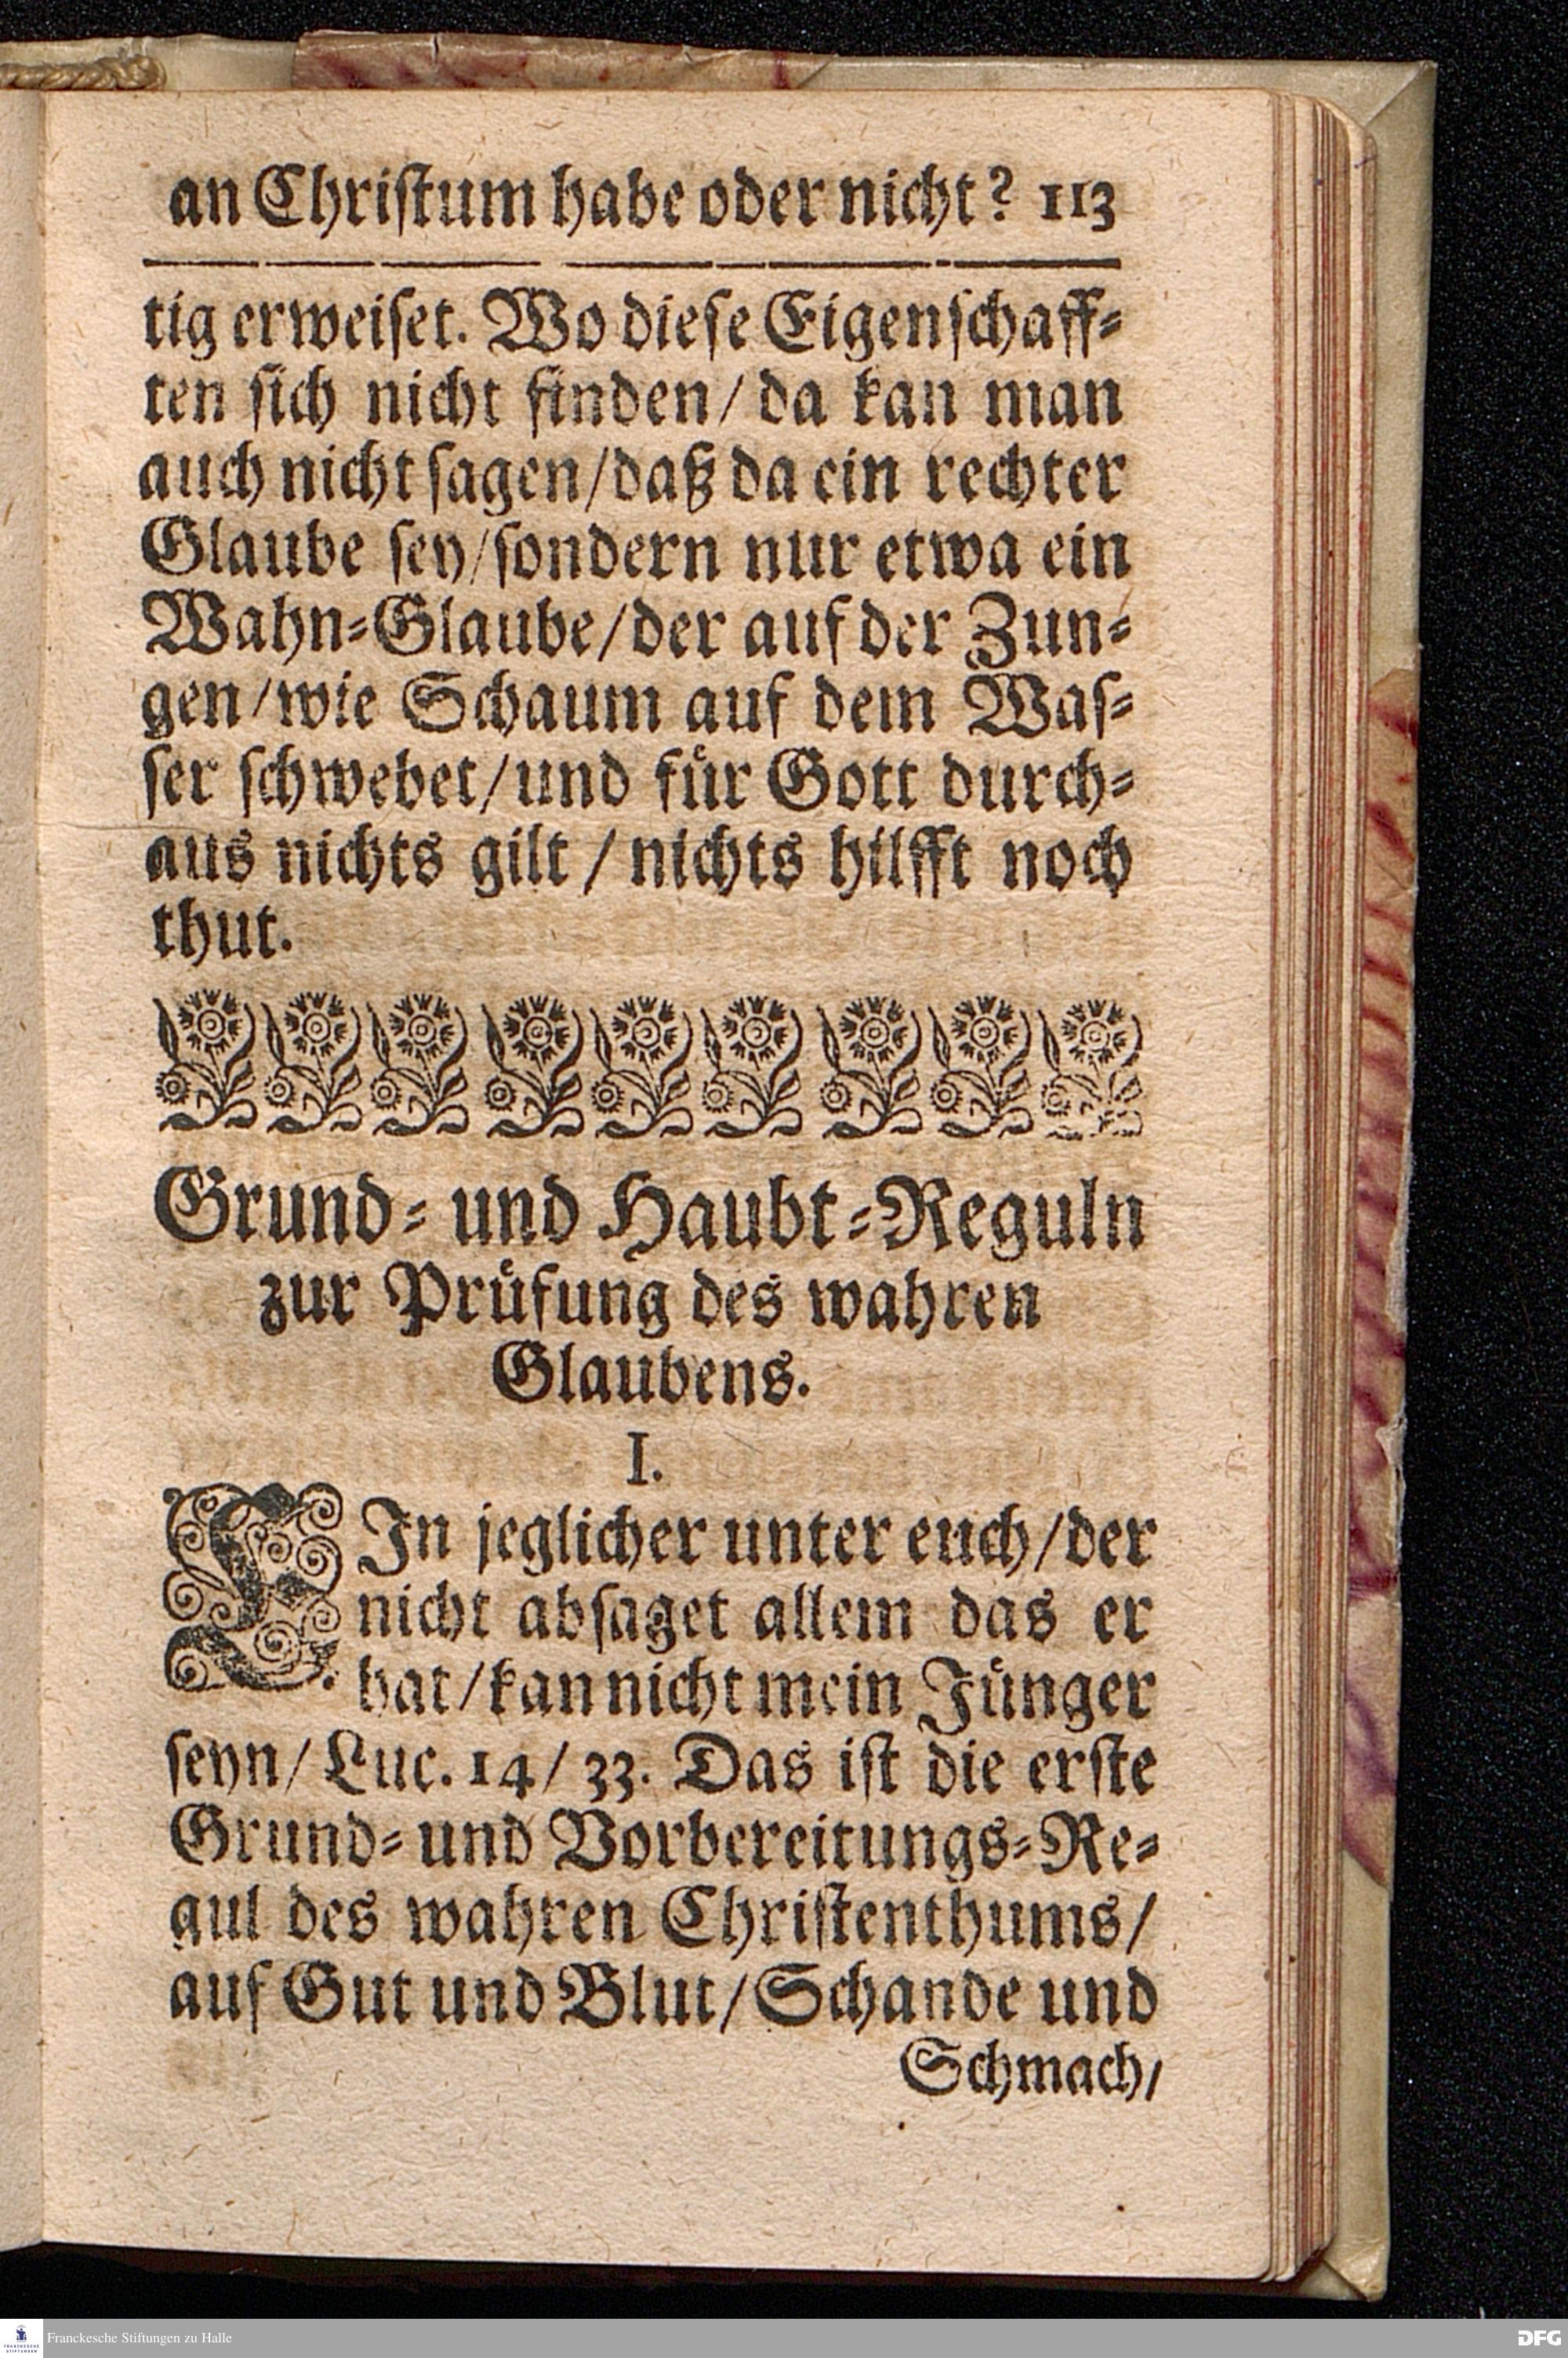 an Chriſtum habe oder nicht? 113
tig erweiſet. Wo dieſe Eigenſchaff⸗
ten ſich nicht finden/ da kan man
auch nicht ſagen/daß da ein rechter
Glaube ſey/ſondern nur etwa ein
Wahn⸗Glaube/der auf der Zun⸗
gen/wie Schaum auf dem Waſ⸗
ſer ſchwebet/und fuͤr Gott durch⸗
aus nichts gilt / nichts hilfft noch
thut.
Grund⸗ und Haubt⸗Reguln
zur Pruͤfung des wahren
Glaubens.
I.
EIn jeglicher unter euch/der
nicht abſaget allem das er
hat/kan nicht mein Juͤnger
ſeyn/ Luc. 14/ 33. Das iſt die erſte
Grund⸗ und Vorbereitungs⸗Re⸗
gul des wahren Chriſtenthums/
auf Gut und Blut/Schande und
Schmach/
Franckesche Stiftungen zu Halle
DFG